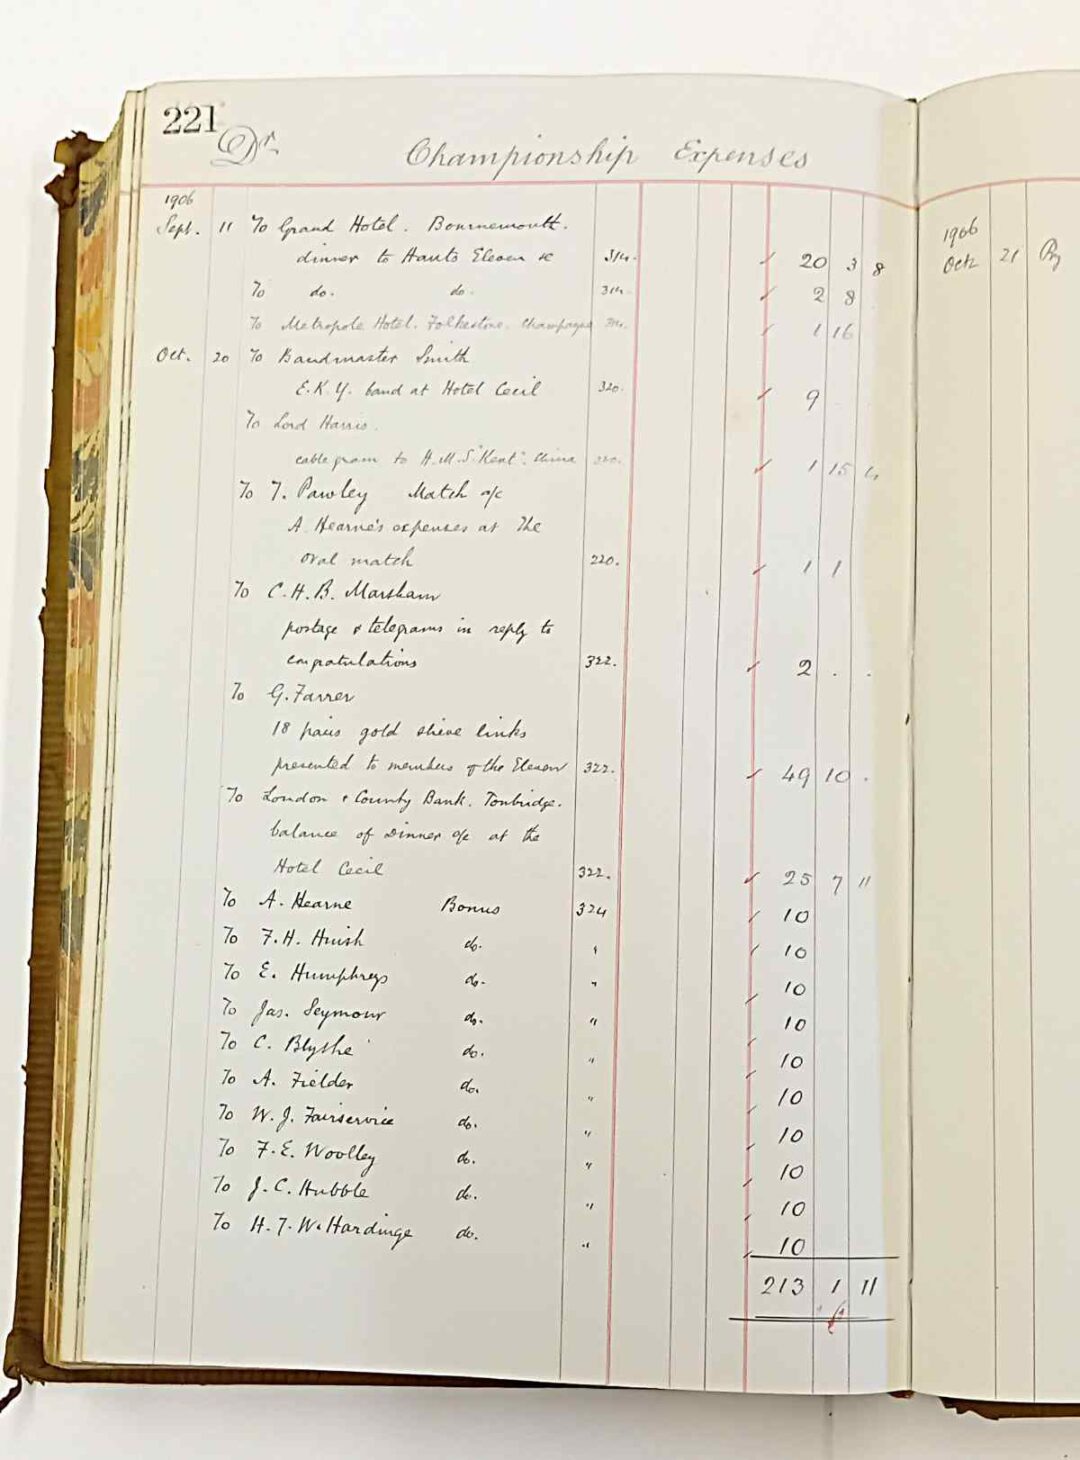 221
Dr. Championship Expenses
1906
Sept. 11 To Grand Hotel. Bournemouth.
dinner to Hants Eleven &c 314. 20 3 8
To do. do. 314. 2 8
To Metropole Hotel. Folkestone. Champagne 314. 1 16
Oct. 20 To Bandmaster Smith
E.K.Y. band at Hotel Cecil 320. 9
To Lord Harris.
cablegram to H.M.S "Kent". China 220. 1 15 4
To T. Pawley Match a/c
A. Hearne's expenses at The
Oval match 220. 1 1
To C.H.B. Marsham
postage & telegrams in reply to
congratulations 322. 2 . .
To G. Farrer
18 pairs gold sleeve links
presented to members of the Eleven 322. 49 10 .
To London & County Bank. Tonbridge.
balance of Dinner a/c at the
Hotel Cecil 322. 25 7 11
To A. Hearne Bonus 324 10
To F.H. Huish do. " 10
To E. Humphreys do. " 10
To Jas. Seymour do. " 10
To C. Blythe do. " 10
To A. Fielder do. " 10
To W.J. Fairservice do. " 10
To F.E. Woolley do. " 10
To J.C. Hubble do. " 10
To H.T.W. Hardinge do. " 10
213 1 11
1906
Oct. 21 By